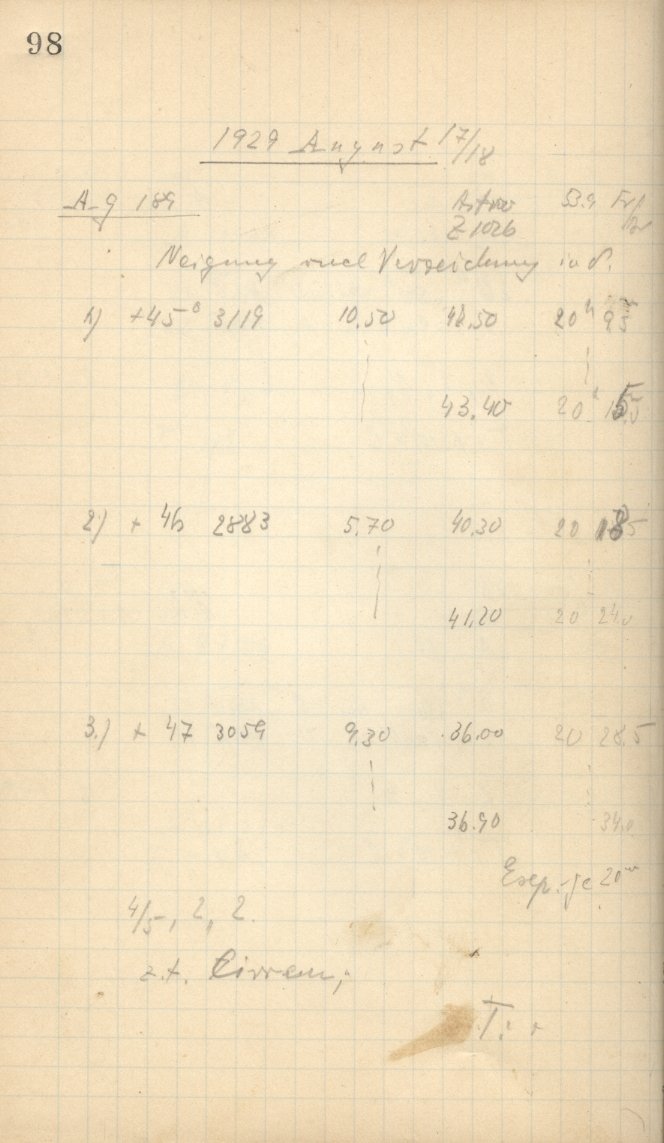 98
1929 August 17/18
A-g 189 Astro 53.9
Z 1026
Neigung und Verzeichnung in δ.
1) +45° 3119 10.50 42.50 20h 9.5m
43.40 20h
2) + 46 2883 5.70 40.30 20 18.5
41.20 20 24.0
3.) + 47 3059 9.30 36.00 20 28.5
36.90 34.0
Exp. je 20m
4/5, 2, 2.
z.t. Cirren;
T: